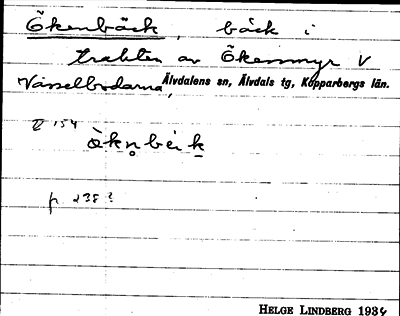 Ökenbäck, bäck i
trakten av Ökenmyr V
Vasselbodarna, Älvdalens sn, Älvdals tg, Kopparbergs län.
154
p. 238
HELGE LINDBERG 1934